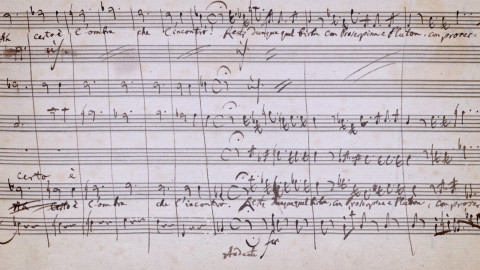 Ah certo è l'ombra che l'incontrò! Resti dunque quel birbon con Proserpina e Pluton, con proser-
certo è
Ah certo è l'ombra che l'incontrò. Resti dunque quel birbon, con Proserpina e Pluton, con proser